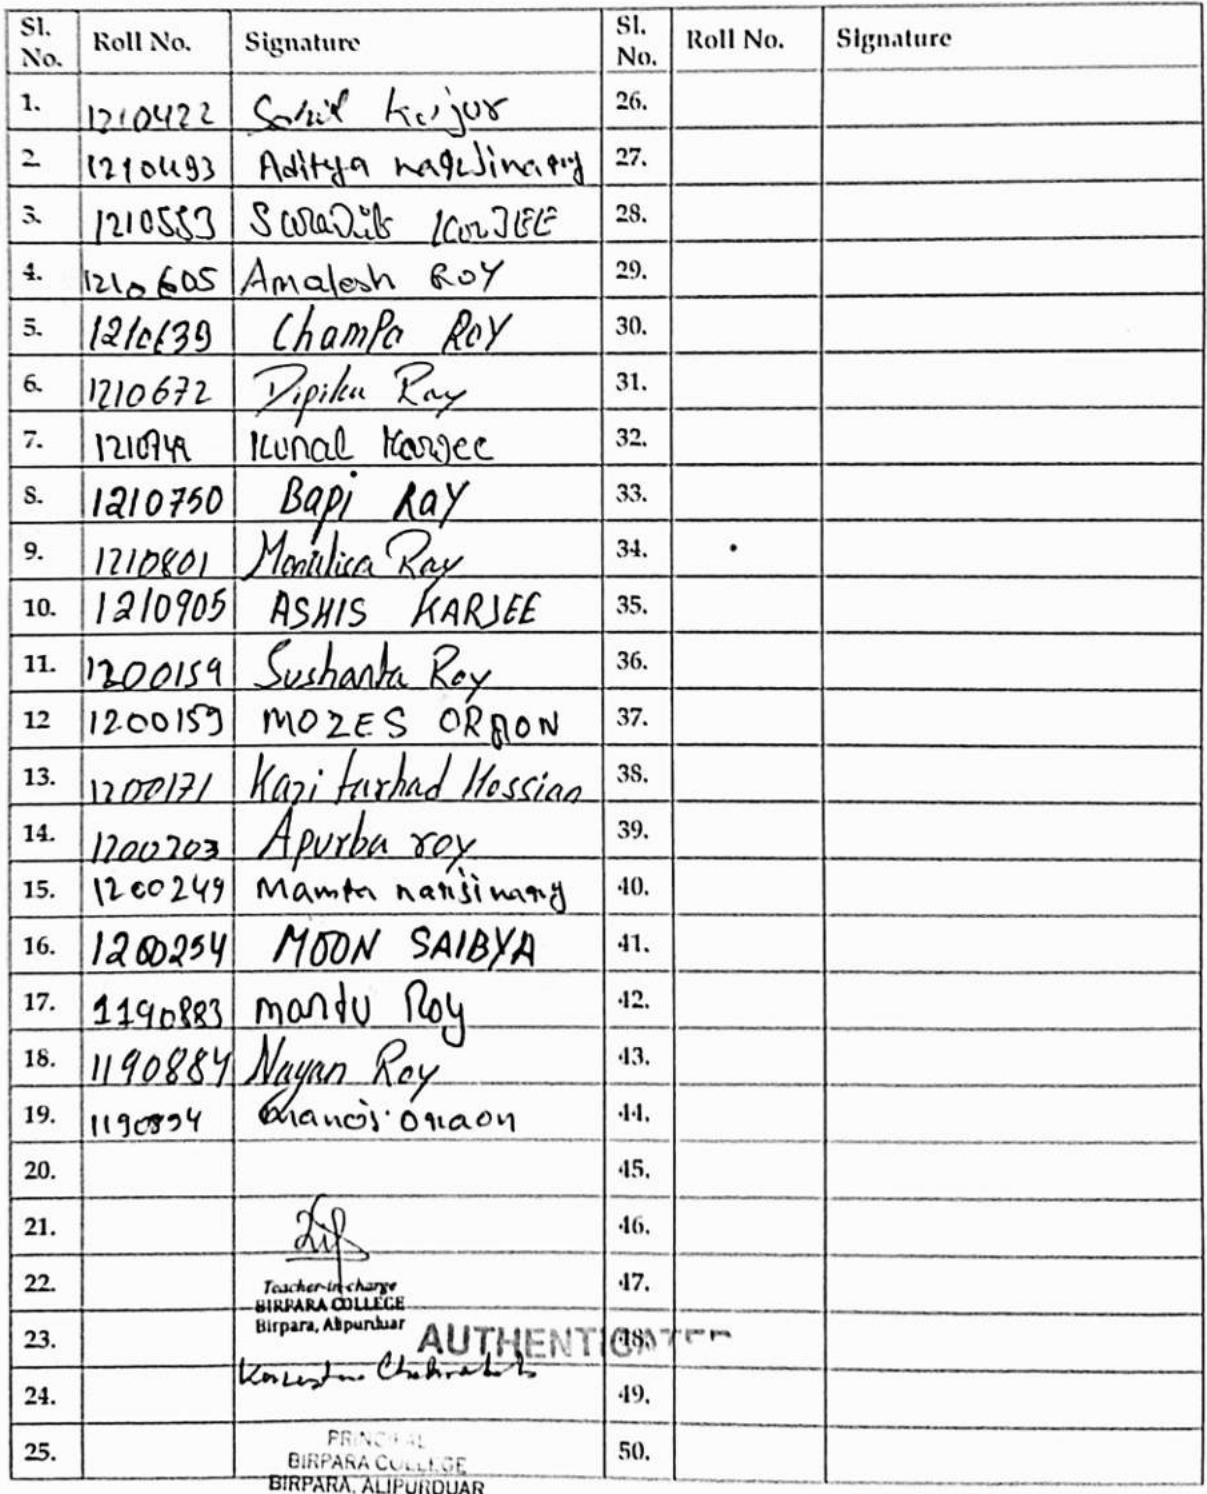 Sl. No. Roll No. Signature Sl. No. Roll No. Signature
1. 1210422 26.
2 1210493 Aditya 27.
3. 1210553 KARJEE 28.
4. 1210605 Amalesh ROY 29.
5. 1210639 Champa ROY 30.
6. 1210672 Dipika Roy 31.
7. Kunal Karjee 32.
8. 1210750 Bapi RaY 33.
9. 1210801 Ray 34.
10. 1210905 ASHIS KARJEE 35.
11. 1200159 Sushanta Roy 36.
12 1200159 MOZES ORAON 37.
13. 1200171 Kazi farhad Hossian 38.
14. 1200203 Apurba roy 39.
15. 1200249 Mamta narjinary 40.
16. 1200254 MOON SAIBYA 41.
17. 1190883 mantu Roy 42.
18. 1190884 Nayan Roy 43.
19. 1190894 oraon 44.
20. 45.
21. 46.
22. Teacher-in-charge 47.
BIRPARA COLLEGE
Birpara, Alipurduar
23. AUTHENTICATED 48.
24. 49.
25. PRINCIPAL 50.
BIRPARA COLLEGE
BIRPARA, ALIPURDUAR